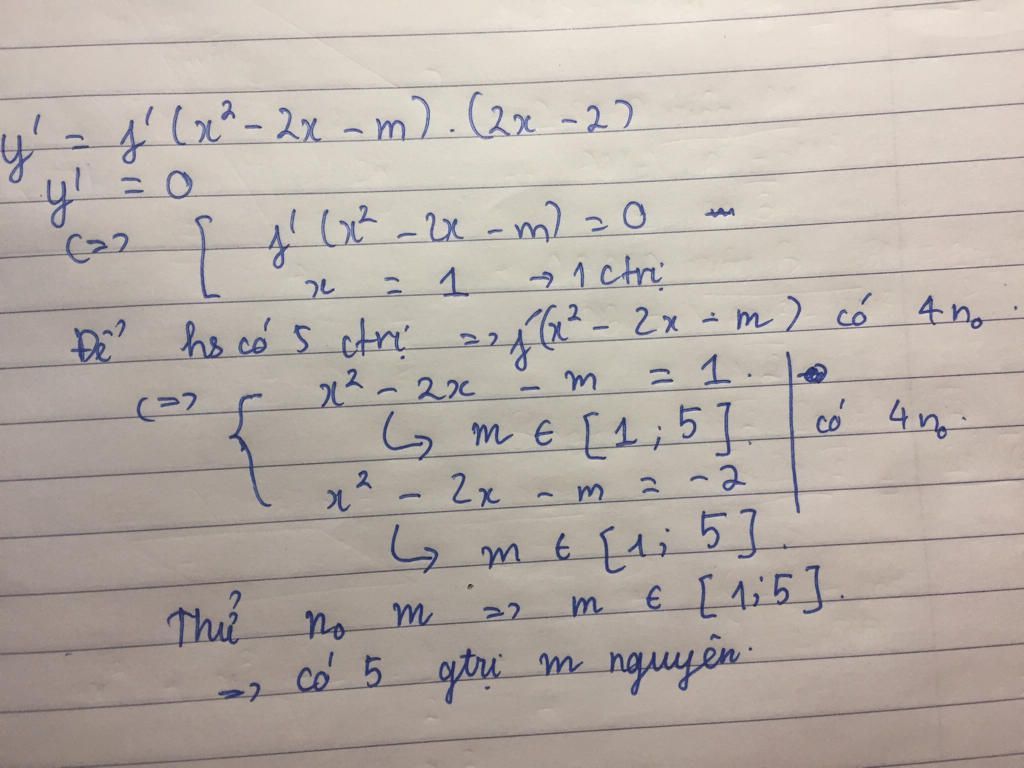 y' = f'(x² - 2x - m).(2x - 2)
y' = 0
<=> [ f'(x² - 2x - m) = 0
x = 1 → 1 ctrị
Để hs có 5 ctrị => f'(x² - 2x - m) có 4 n₀
<=> { x² - 2x - m = 1.
↳ m ∈ [1; 5]. | có 4 n₀.
x² - 2x - m = -2
↳ m ∈ [1; 5].
Thử n₀ m => m ∈ [1;5].
=> có 5 gtrị m nguyên.